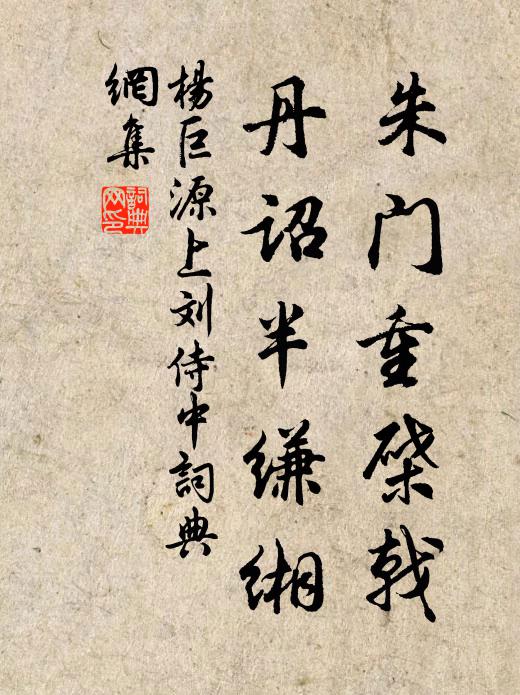 朱门重棨戟
丹诏半缣缃
楊巨源上刘侍中詞典
網集
詞典網印